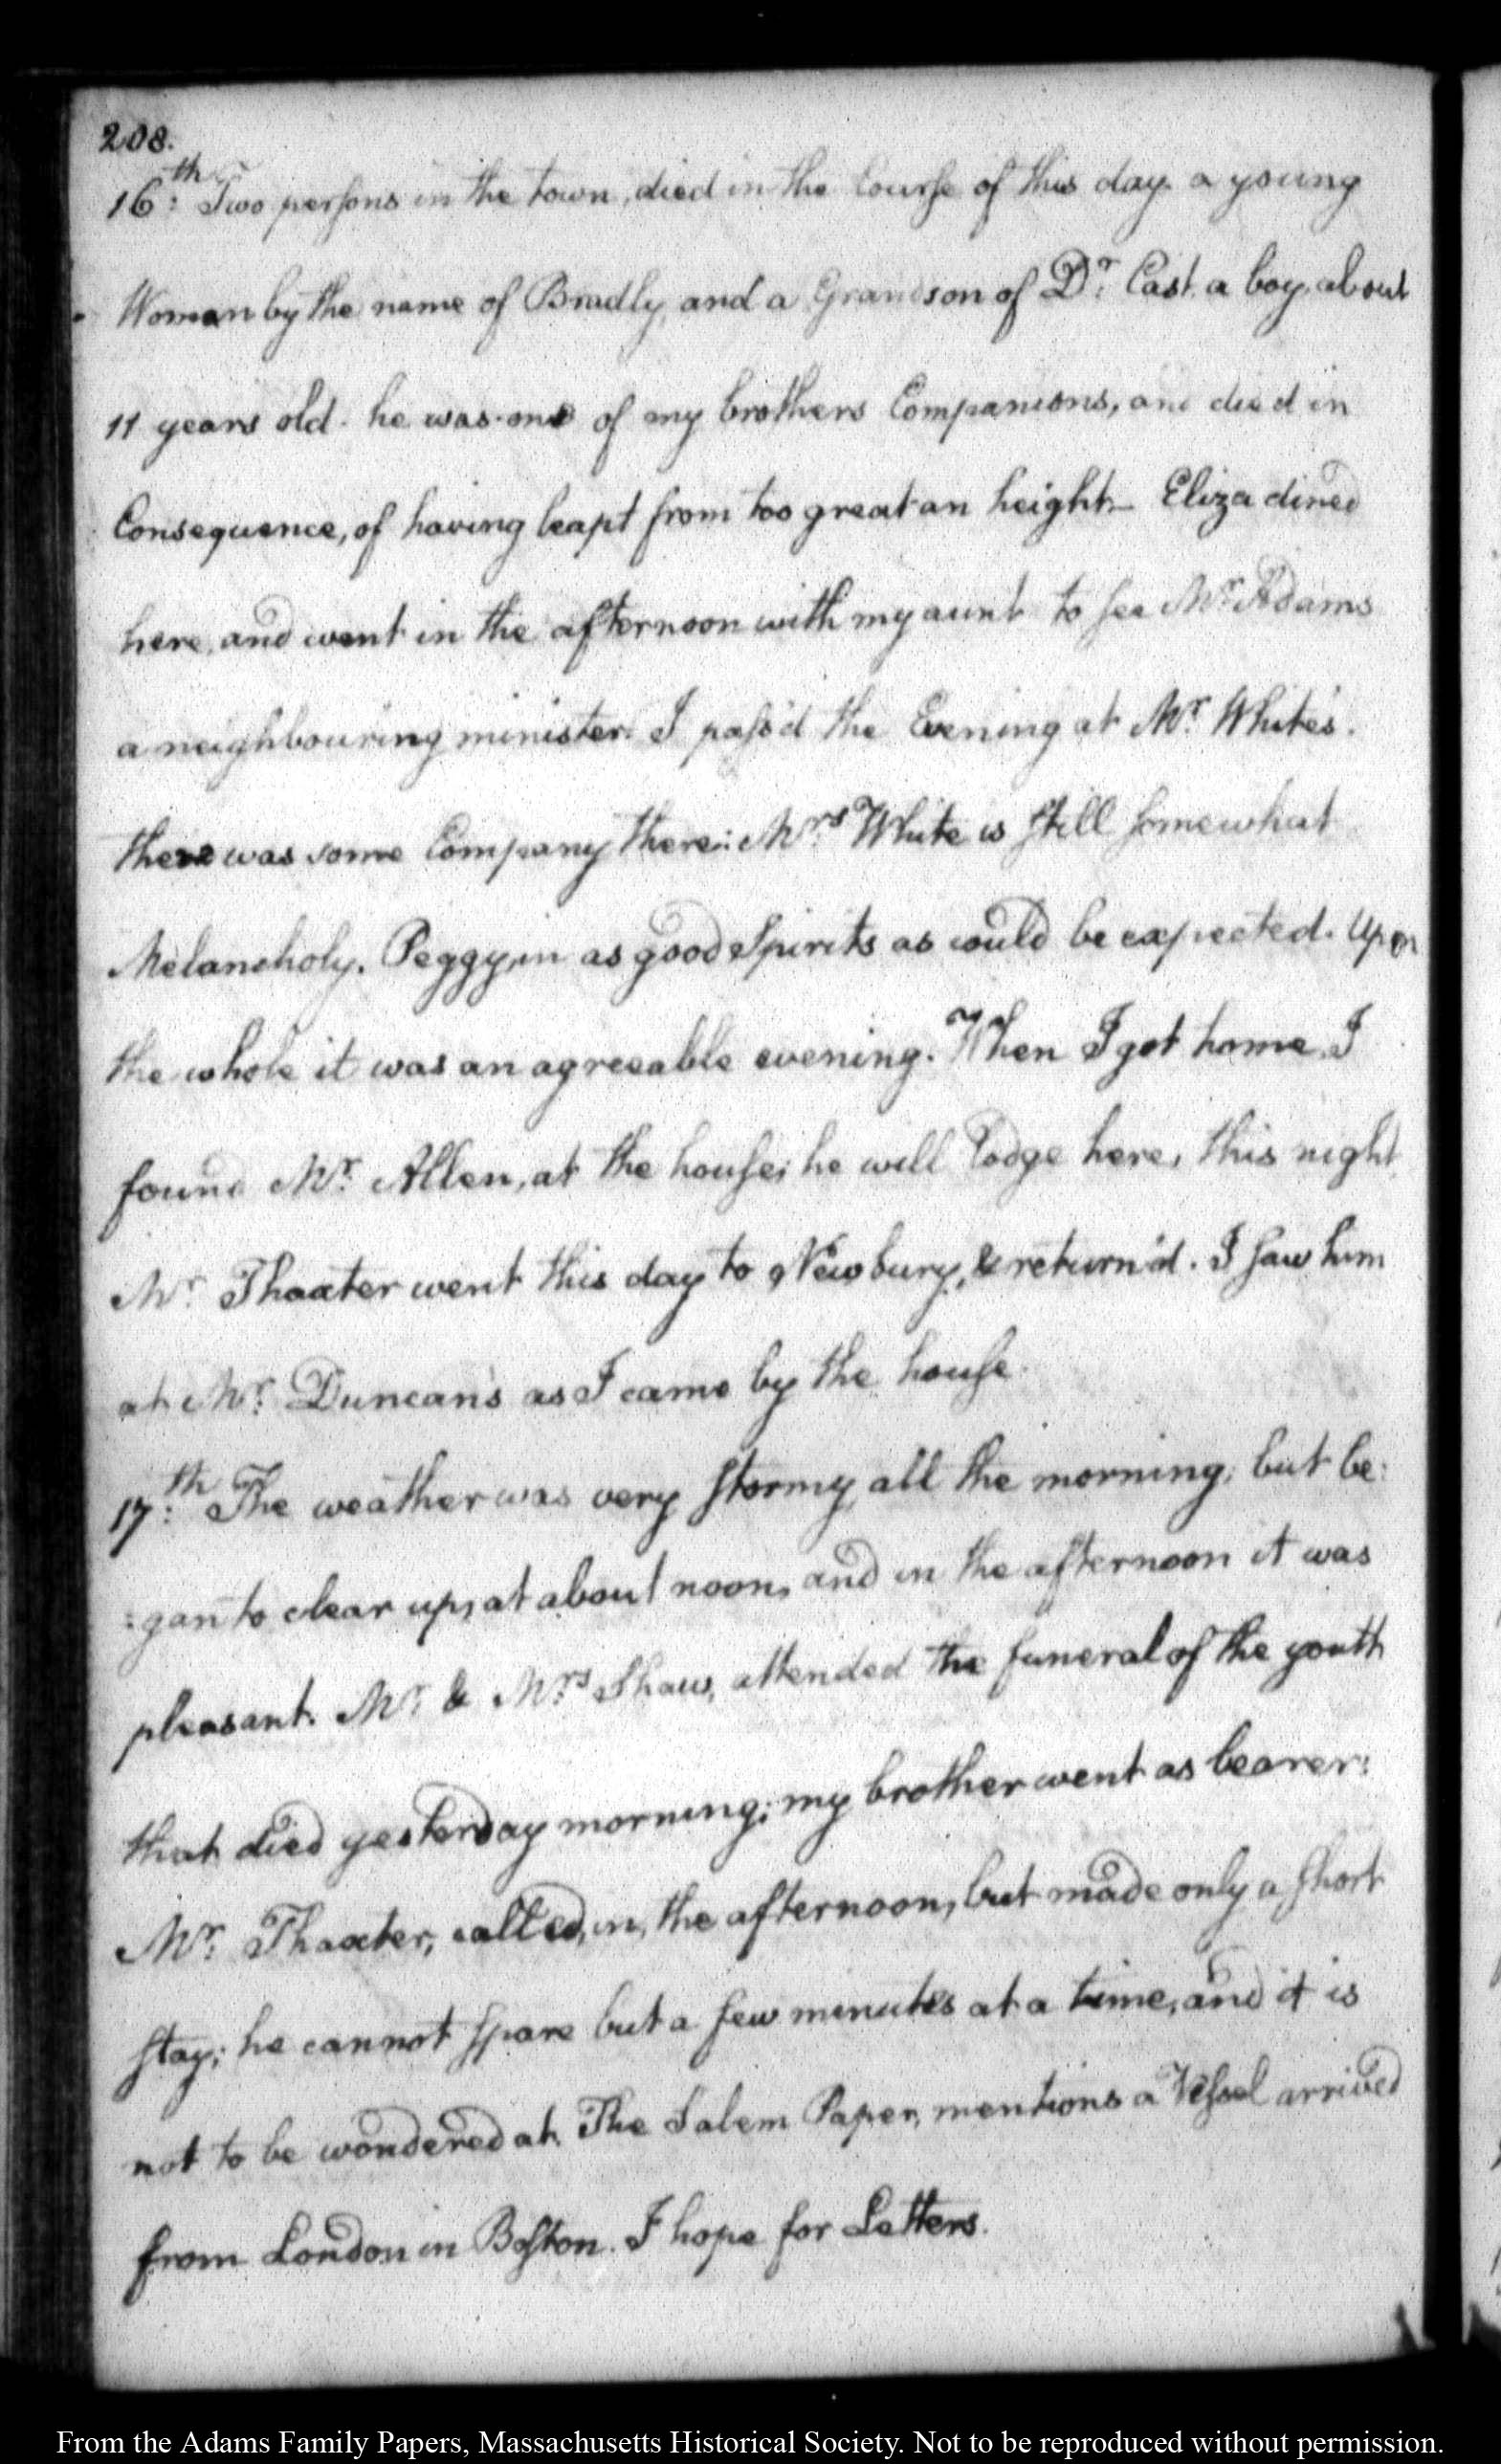 208.
16:th Two persons in the town, died in the Course of this day. a young
Woman by the name of Bradly, and a Grandson of Dr. Cast. a boy, about
11 years old. he was one of my brothers Companions, and died in
Consequence, of having leapt from too great an height— Eliza dined
here, and went in the afternoon with my aunt to see Mr. Adams
a neighbouring minister. I pass'd the Evening at Mr. White's.
there was some Company there: Mrs. White is still somewhat
Melancholy. Peggy, in as good Spirits as could be expected. Upon
the whole it was an agreeable evening. When I got home, I
found Mr. Allen, at the house; he will lodge here, this night
Mr. Thaxter went this day to Newbury, & return'd. I saw him
at Mr. Duncan's as I came by the house.
17:th The weather was very stormy, all the morning; but be:
:gan to clear up, at about noon, and in the afternoon it was
pleasant. Mr. & Mrs. Shaw, attended the funeral of the youth
that died yesterday morning; my brother went as bearer:
Mr. Thaxter, called, in, the afternoon, but made only a short
stay; he cannot spare but a few minutes at a time, and it is
not to be wondered at. The Salem Paper, mentions a Vessel arrived
from London in Boston. I hope for Letters.
From the Adams Family Papers, Massachusetts Historical Society. Not to be reproduced without permission.